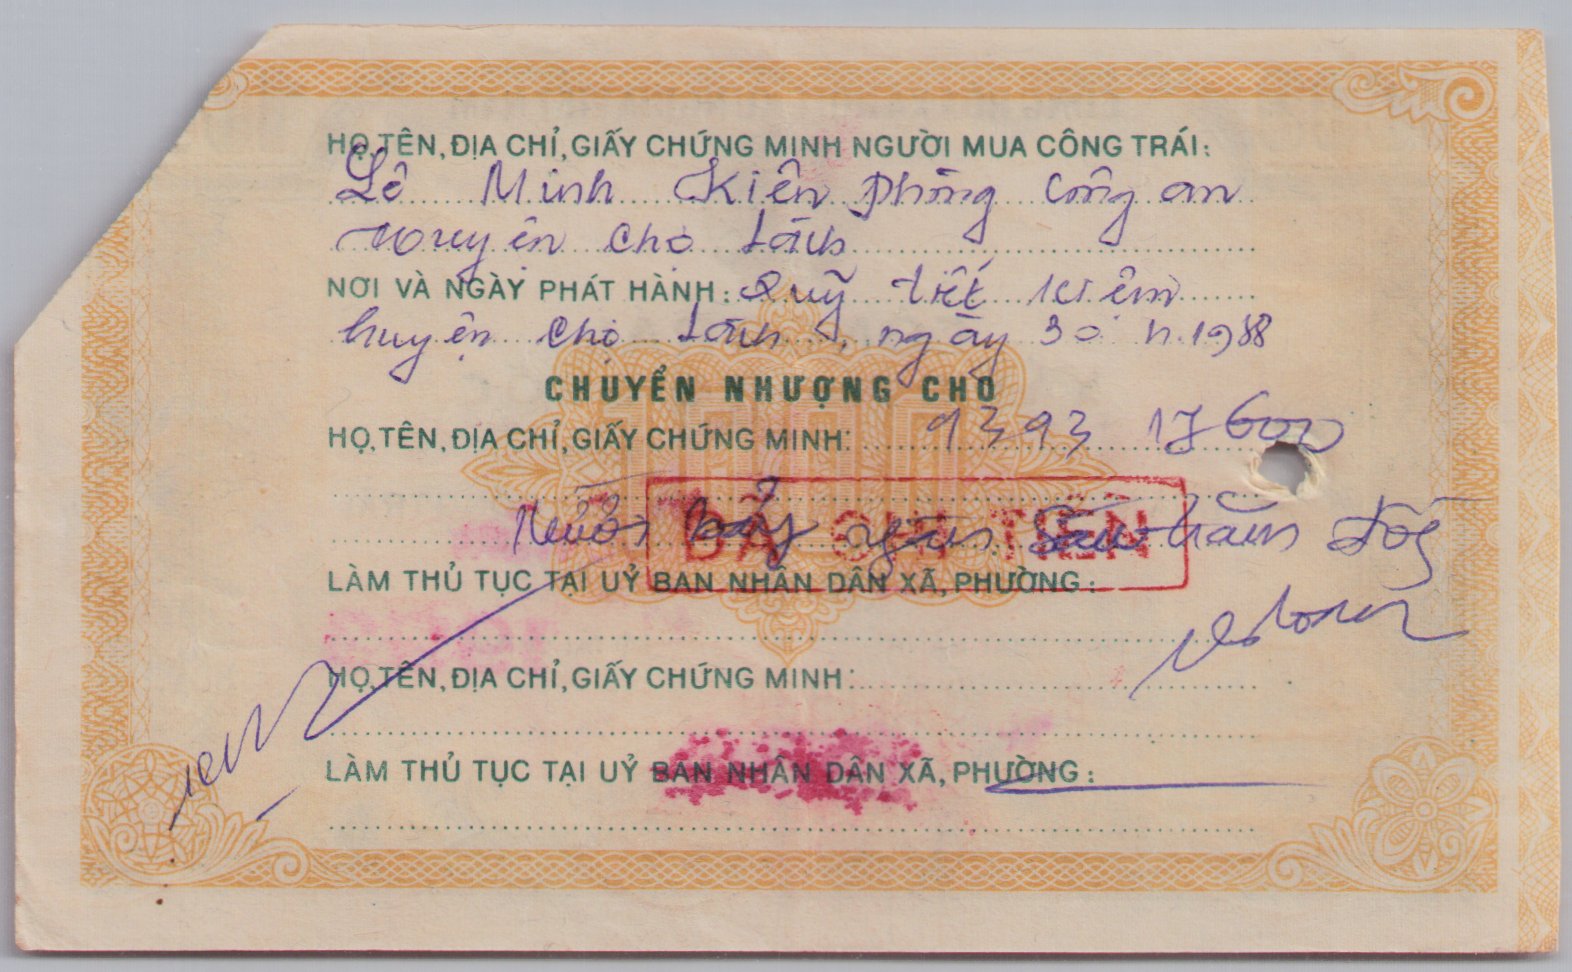 HỌ,TÊN,ĐỊA CHỈ,GIẤY CHỨNG MINH NGƯỜI MUA CÔNG TRÁI:
Lê Minh Kiên Phòng Công an
Huyện Chợ Lách
NƠI VÀ NGÀY PHÁT HÀNH: Quỹ tiết kiệm
huyện Chợ Lách, ngày 30.11.1988
CHUYỂN NHƯỢNG CHO
HỌ,TÊN,ĐỊA CHỈ,GIẤY CHỨNG MINH: 9393 17600
Mười bảy ngàn Sáu trăm đồng
ĐÃ CHI TIỀN
LÀM THỦ TỤC TẠI UỶ BAN NHÂN DÂN XÃ, PHƯỜNG:
HỌ,TÊN,ĐỊA CHỈ,GIẤY CHỨNG MINH:
LÀM THỦ TỤC TẠI UỶ BAN NHÂN DÂN XÃ, PHƯỜNG: